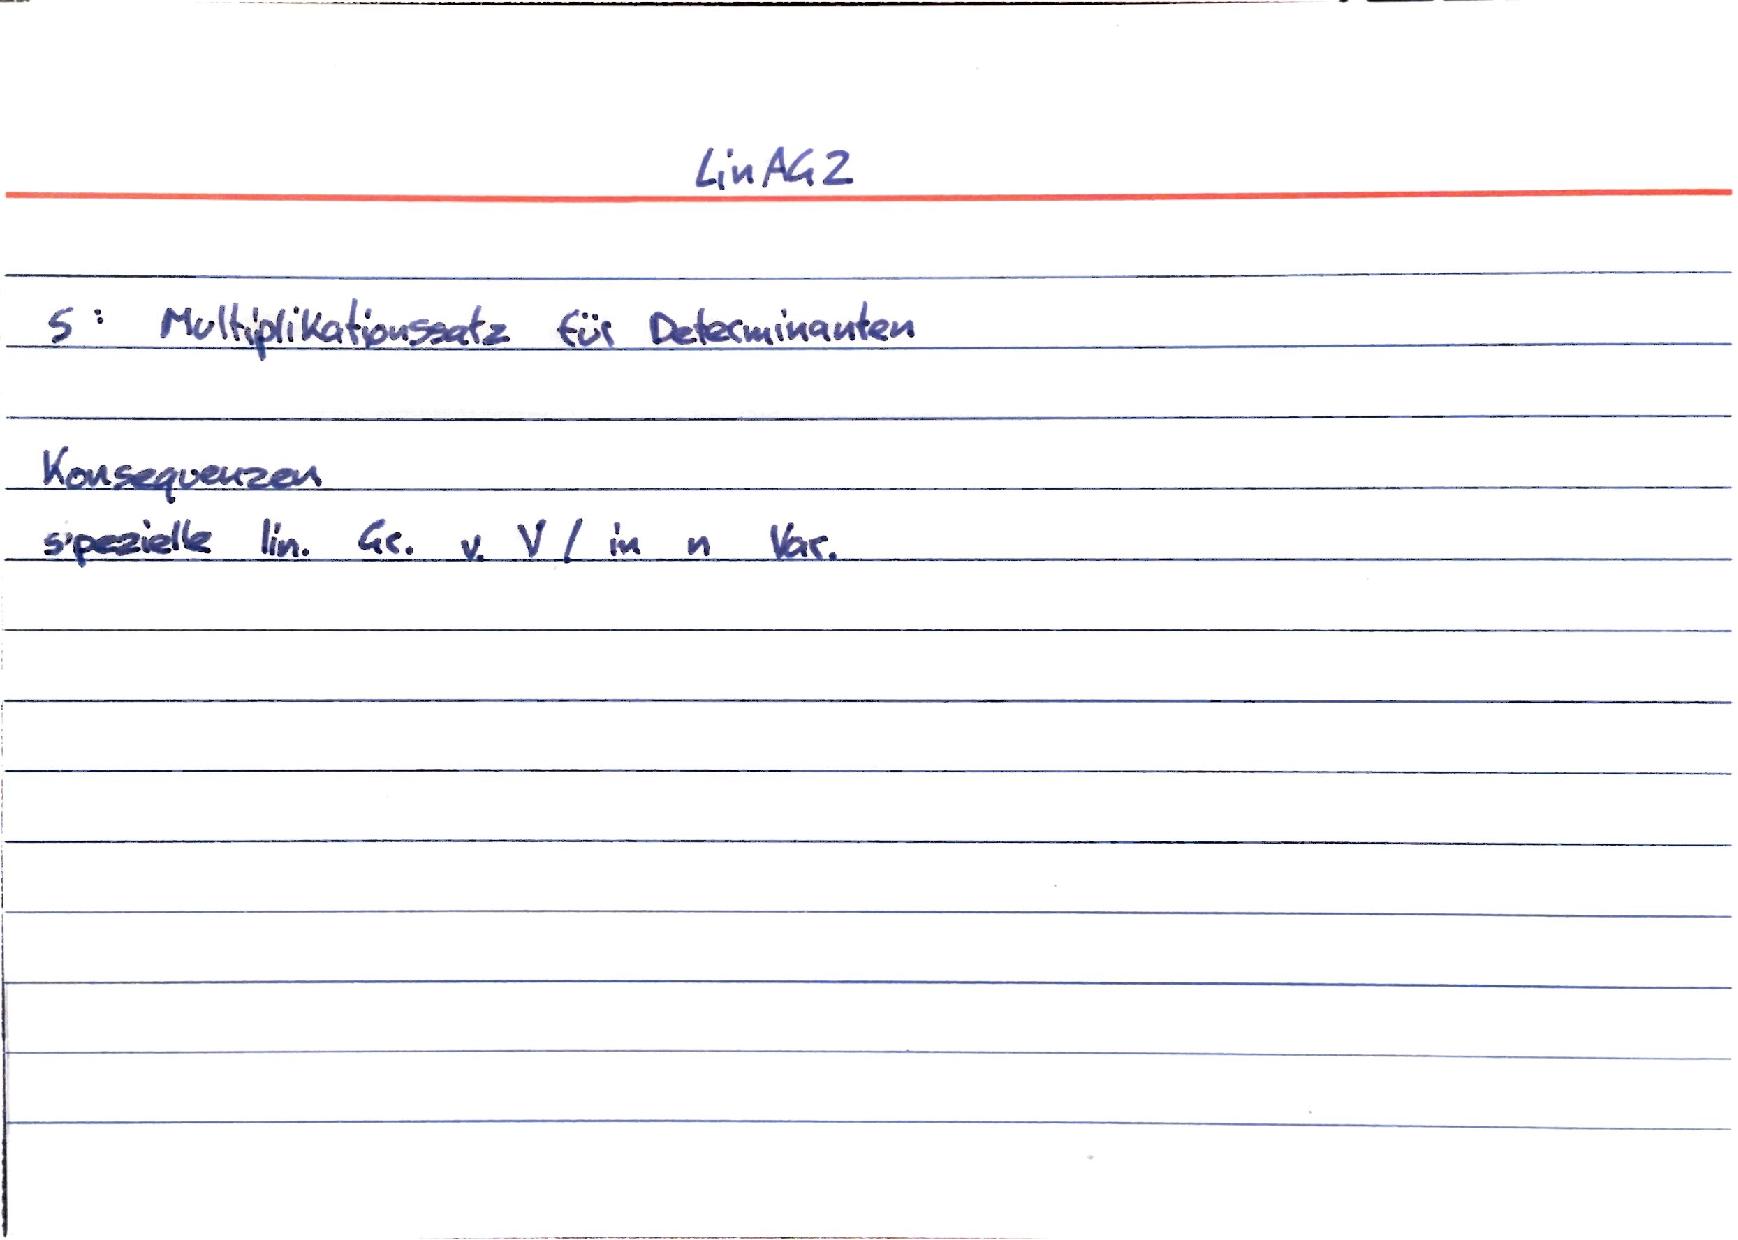 LinAG2
S: Multiplikationssatz für Determinanten
Konsequenzen
spezielle lin. Gr. v. V / in n Var.